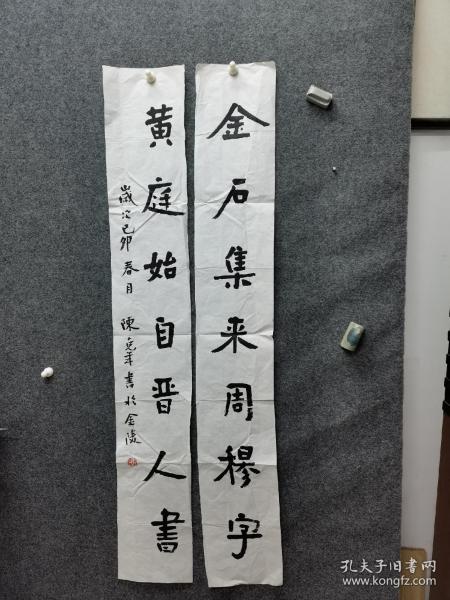 金石集来周穆字
黄庭始自晋人書
歲次己卯春月陳克年書於金陵
孔夫子旧书网
www.kongfz.com